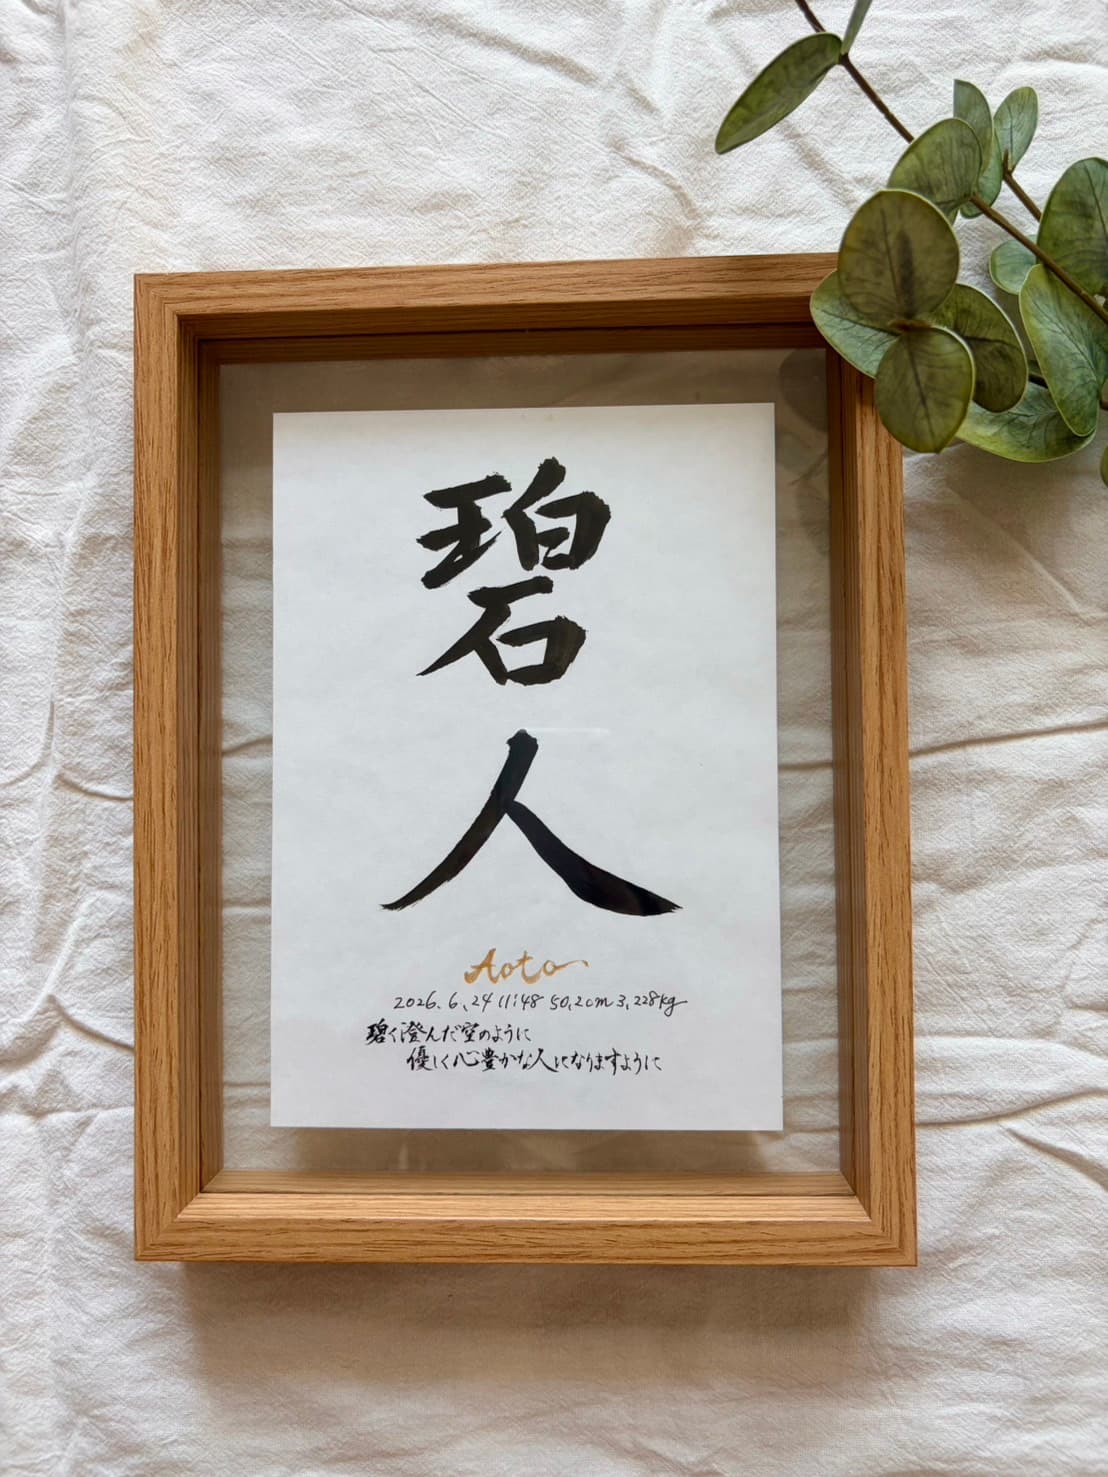 碧人
Aoto
2026.6.24 11:48 50.2cm 3,228kg
碧く澄んだ空のように
優しく心豊かな人になりますように